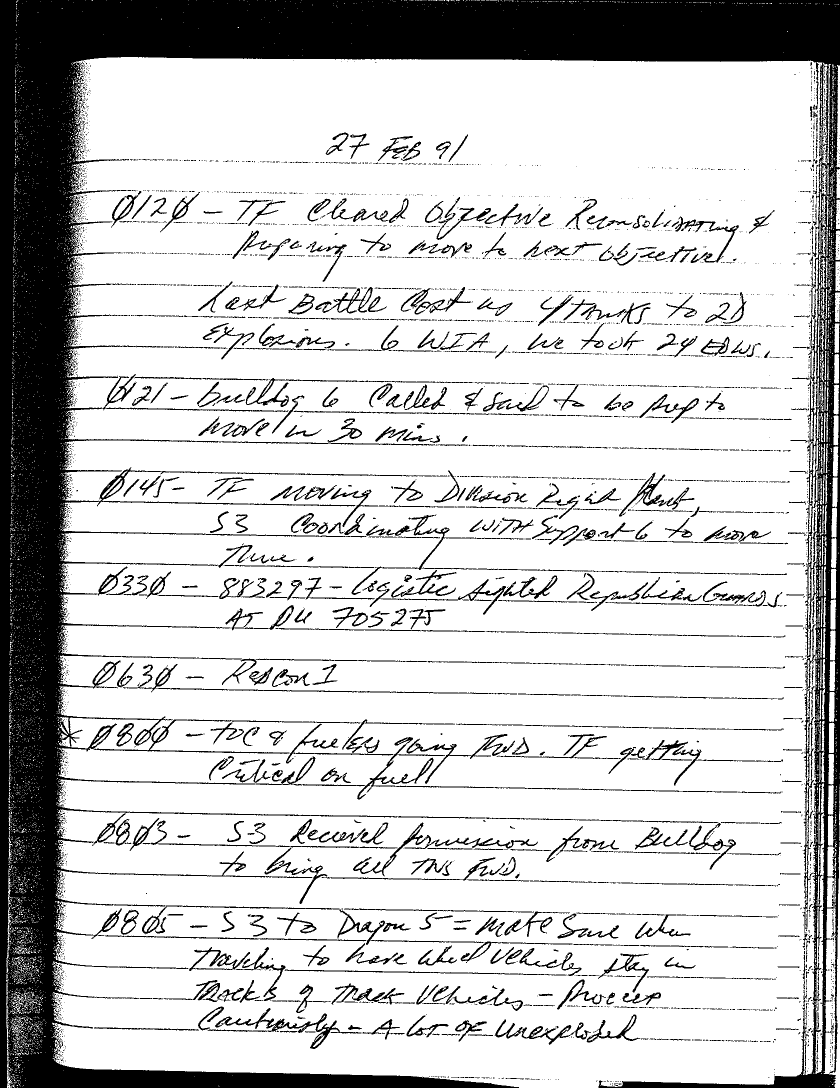 27 FEB 91
Ø12Ø - TF Cleared Objective Reconsolidating &
Preparing to move to next objective.
Last Battle Cost us 4 tanks to 2D
Explosions. 6 WIA, we took 24 EPWs.
Ø121 - bulldog 6 Called & said to be prep to
move in 30 mins.
Ø145 - TF moving to Division Right flank,
S3 Coordinating WITH Support 6 to move
Thru.
Ø33Ø - 883297 - Logistic sighted Republican Guards
AT PU 705275
Ø63Ø - Redcon 1
* Ø8ØØ - TOC & fuelers going FWD. TF getting
Critical on fuel
Ø8Ø3 - S-3 Recieved permission from Bulldog
to bring all TNS FWD.
Ø8Ø5 - S3 to Dragon 5 = make Sure when
Traveling to have wheel vehicles stay in
Tracks of Track Vehicles - Proceed
Cautiously - A lot of Unexploded